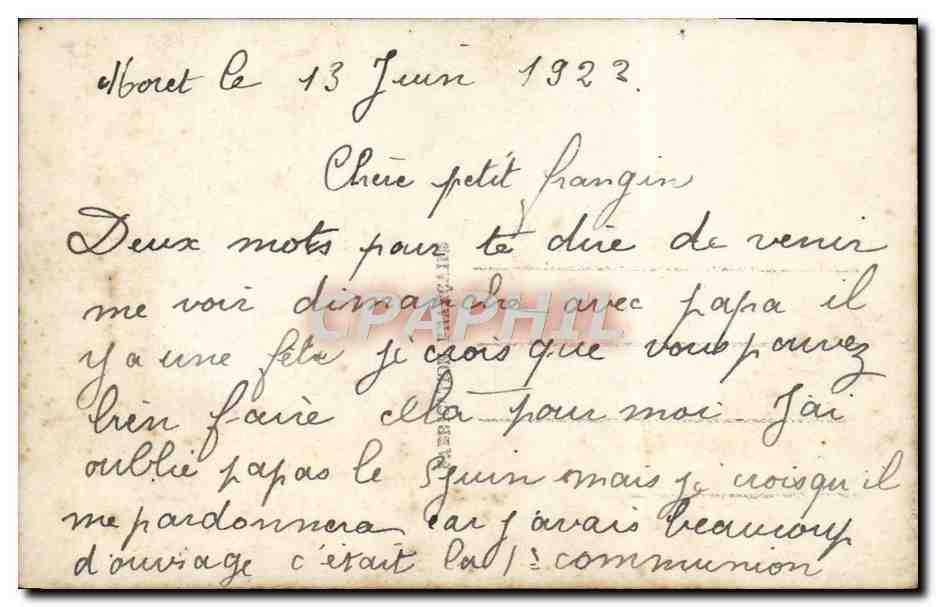 Moret le 13 Juin 1922.
Chère petit frangin
Deux mots pour te dire de venir
me voir dimanche avec papa il
y a une fête je crois que vous pouvez
bien faire cela pour moi J'ai
oublié papas le 5 juin mais je crois qu'il
me pardonnera car j'avais beaucoup
d'ouvrage c'était la 1è communion
FABRICATION FRANÇAISE
CPAPHIL